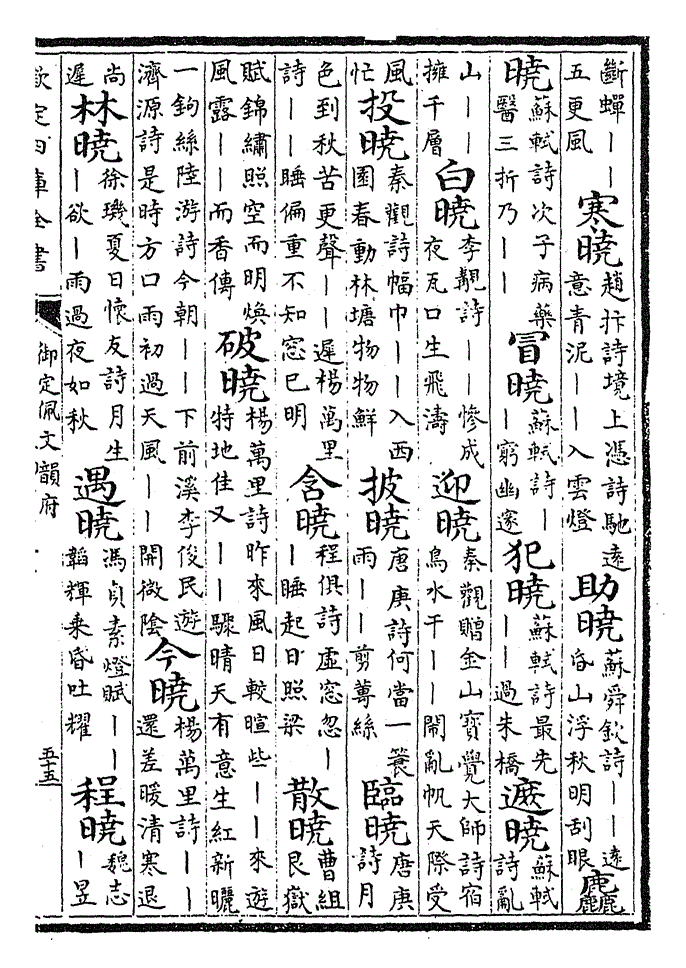 斷蟬｜｜
五更風
寒曉
趙抃詩境上憑詩馳遠
意青泥｜｜入雲燈
助曉
蘇舜欽詩｜｜遠
昏山浮秋明刮眼
麤
曉
蘇軾詩次子病藥
醫三折乃｜｜
冒曉
蘇軾詩｜
｜窮幽邃
犯曉
蘇軾詩最先
｜｜過朱橋
遮曉
蘇軾
詩亂
山｜｜
擁千層
白曉
李覯詩｜｜慘成
夜瓦口生飛濤
迎曉
秦觀贈金山寶覺大師詩宿
鳥水干｜｜鬧亂帆天際受
風
忙
投曉
秦觀詩幅巾｜｜入西
園春動林塘物物鮮
披曉
唐庚詩何當一蓑
雨｜｜剪蓴絲
臨曉
唐庚
詩月
色到秋苦更聲｜｜遲楊萬里
詩｜｜睡偏重不知窓已明
含曉
程俱詩虛窓忽｜
｜睡起日照梁
散曉
曹組
艮嶽
賦錦繡照空而明煥
風露｜｜而香傳
破曉
楊萬里詩昨來風日較暄些｜｜來遊
特地佳又｜｜驟晴天有意生紅新曬
一鉤絲陸游詩今朝｜｜下前溪李俊民遊
濟源詩是時方口雨初過天風｜｜開微陰
今曉
楊萬里詩｜｜
還差暖清寒退
尚
遲
林曉
徐璣夏日懷友詩月生
｜欲｜雨過夜如秋
遇曉
馮貞素燈賦｜｜
韜輝乘昏吐耀
程曉
魏志
｜昱
欽定四庫全書
御定佩文韻府
五十五